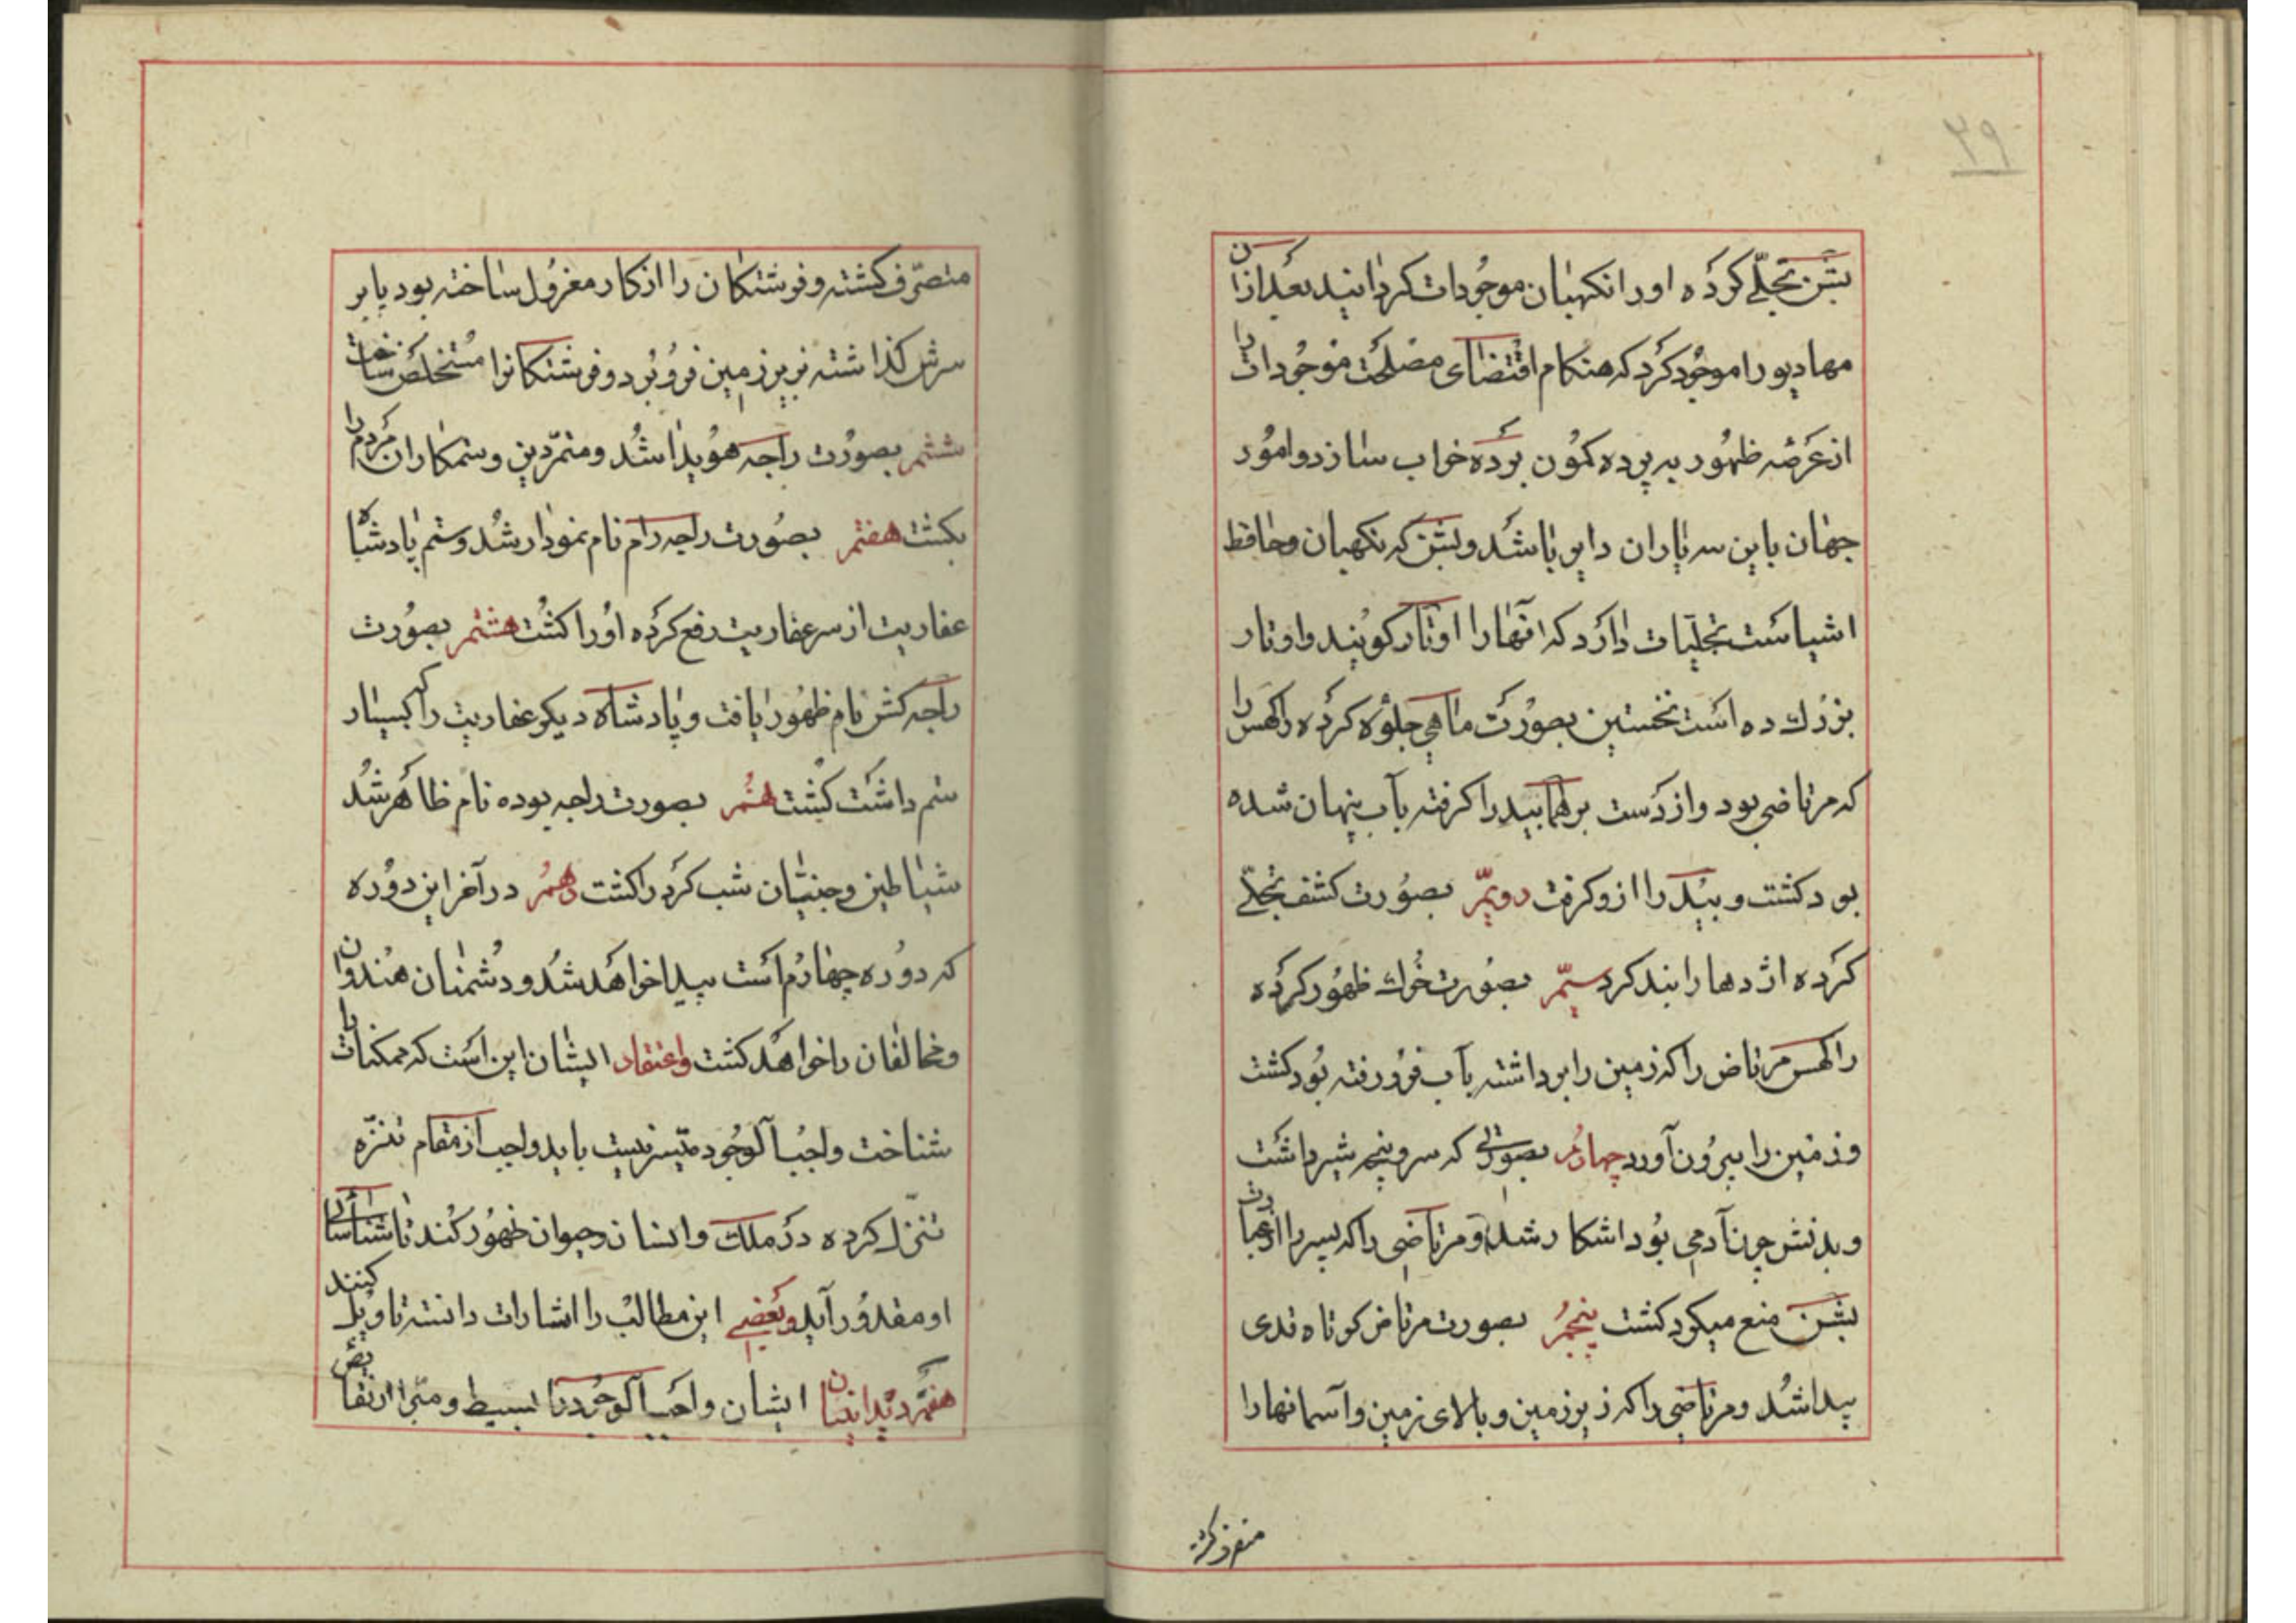 ۲۹
بشن تجلّی کرده اورا نکهبان موجودات کردانید بعد ازان
مهادیو را موجود کرد که هنکام اقتضای مصلحت موجودات را
از عرصه ظهور به پرده کمون برده خواب سازد و امور
جهان باین سه یاران دایر باشد و بشن که نکهبان و حافظ
اشیاست تجلّیات دارد که آنها را اوتار کویند و اوتار
بزرك ده است نخستین بصورت ماهی جلوه کرده راکهس را
که مرتاضی بود و از دست برهما بید را کرفته بآب پنهان شده
بود کشت و بید را ازو کرفت دویّم بصورت کشف تجلّی
کرده اژدها را بند کرد سیّم بصورت خوك ظهور کرده
راکهس مرتاض را که زمین را برداشته بآب فرو رفته بود کشت
و زمین را بیرون آورد چهارم بصورتی که سر و پنجه شیر داشت
و بدنش چون آدمی بود اشکار شد و مرتاضی را که پسر را از عبادت
بشن منع میکرد کشت پنجم بصورت مرتاض کوتاه قدی
پیدا شد و مرتاضی را که زیر زمین و بالای زمین و آسمانها را
متصرّف کشته و فرشتکان را از کار معزول ساخته بود پا بر
سرش کذاشته بزیر زمین فرو برد و فرشتکانرا مستخلص ساخت
ششم بصورت راجه هویدا شد و متمرّدین و ستمکاران مردم را
بکشت هفتم بصورت راجه رام نام نمودار شد و ستم پادشاه
عفاریت از سر عفاریت رفع کرده اورا کشت هشتم بصورت
راجه کشن نام ظهور یافت و پادشاه دیکر عفاریت را که بسیار
ستم داشت کشت نهم بصورت راجه بوده نام ظاهر شد
شیاطین و جنیّان شب کرد را کشت دهم در آخر این دوره
که دوره چهارم است پیدا خواهد شد و دشمنان هندوان
و مخالفان را خواهد کشت و اعتقاد ایشان این است که ممکنات را
شناخت واجب الوجود میّسر نیست باید واجب از مقام تنزّه
تنزّل کرده در ملك و انسان و حیوان ظهور کند تا شناسائی
او مقدور آید و بعضی این مطالب را اشارات دانسته تاویل کنند
هفتم دیدانتیان ایشان واجب الوجود را بسیط و مبّرا از نقایص